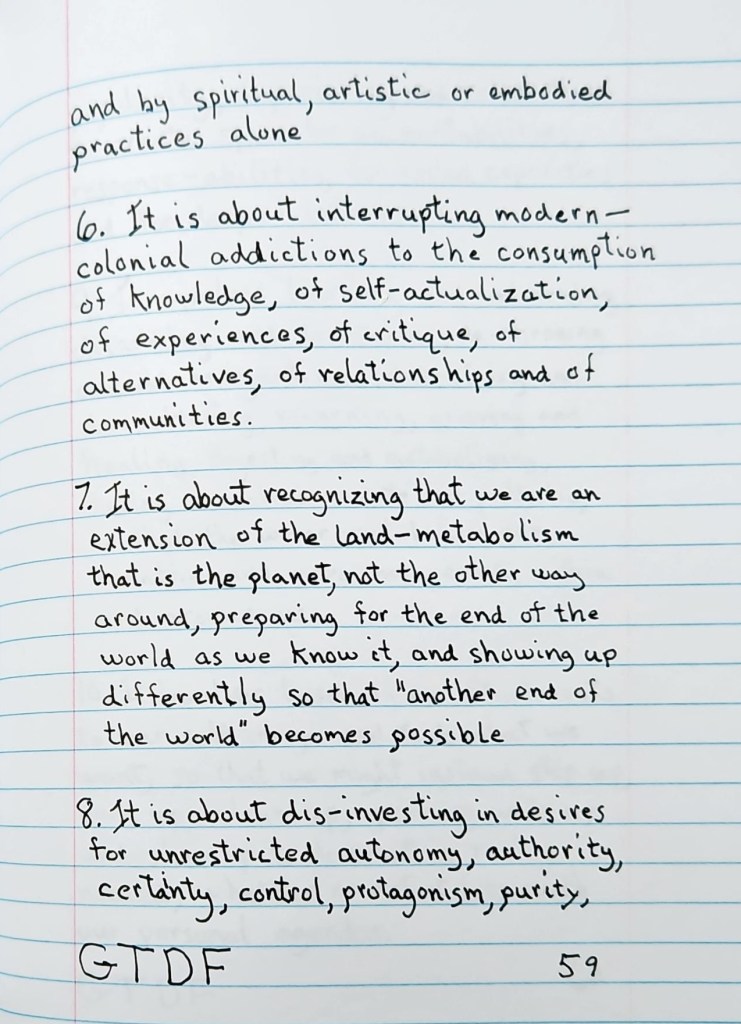 and by spiritual, artistic or embodied
practices alone
6. It is about interrupting modern-
colonial addictions to the consumption
of knowledge, of self-actualization,
of experiences, of critique, of
alternatives, of relationships and of
communities.
7. It is about recognizing that we are an
extension of the land-metabolism
that is the planet, not the other way
around, preparing for the end of the
world as we know it, and showing up
differently so that "another end of
the world" becomes possible
8. It is about dis-investing in desires
for unrestricted autonomy, authority,
certainty, control, protagonism, purity,
GTDF 59